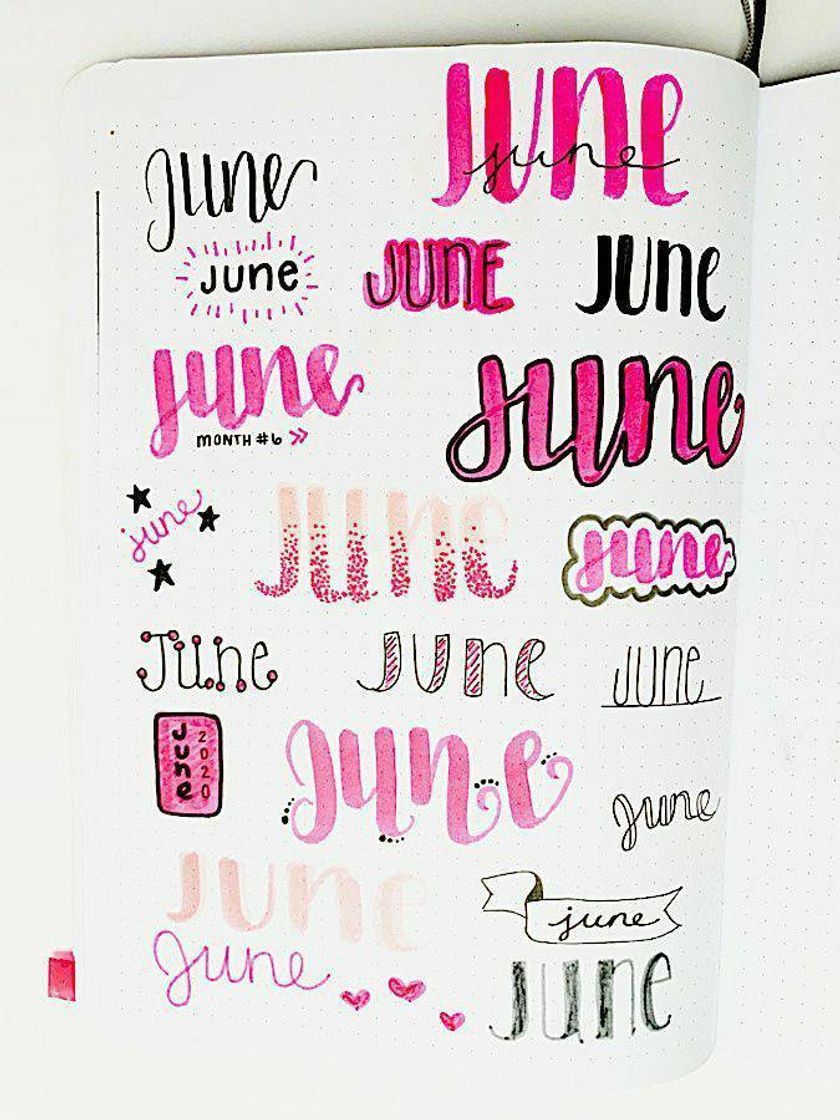 June
JUNE
june
June
JUNE
June
june
MONTH #6 »
june
june
June
june
June
June
June
June
2020
June
June
June
june
June
June